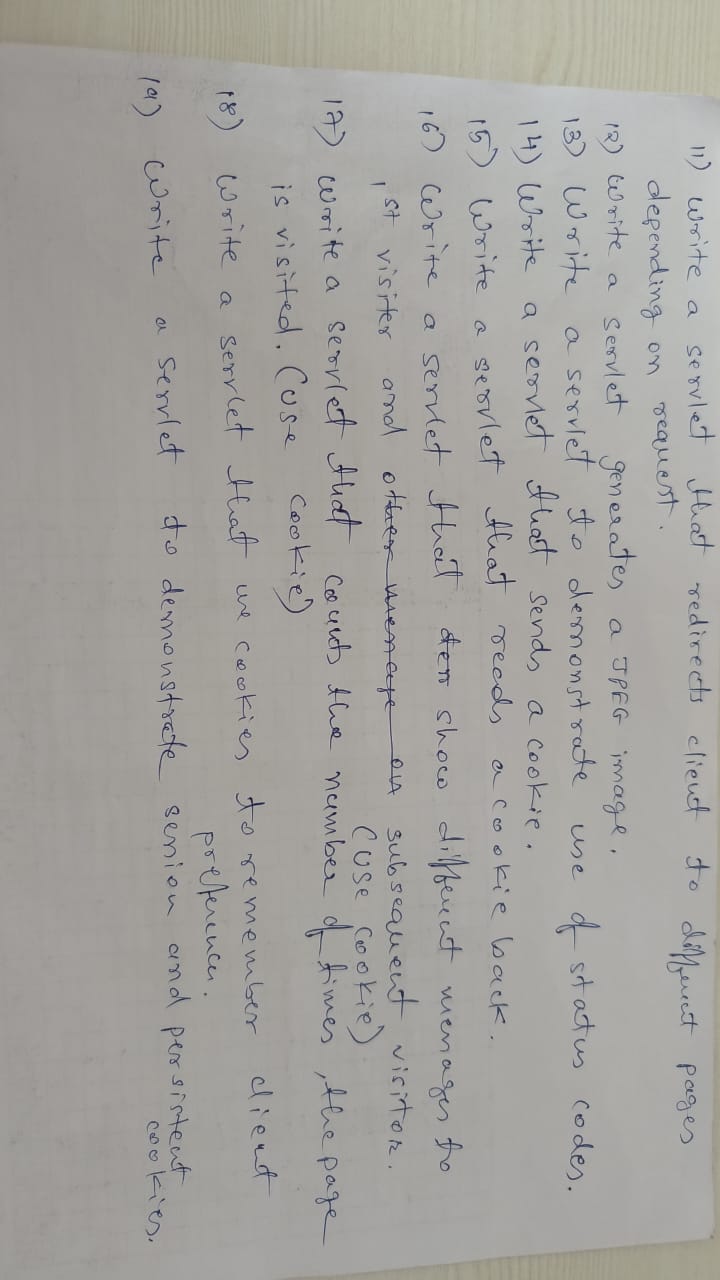 11) Write a servlet that redirects client to different pages
depending on request.
12) Write a servlet generates a JPEG image.
13) Write a servlet to demonstrate use of status codes.
14) Write a servlet that sends a cookie.
15) Write a servlet that reads a cookie back.
16) Write a servlet that show different messages to
1st visiter and subsequent visitor.
(use cookie)
17) Write a servlet that counts the number of times, the page
is visited. (use cookie)
18) Write a servlet that use cookies to remember client
preferences.
19) Write a servlet to demonstrate session and persistent
cookies.